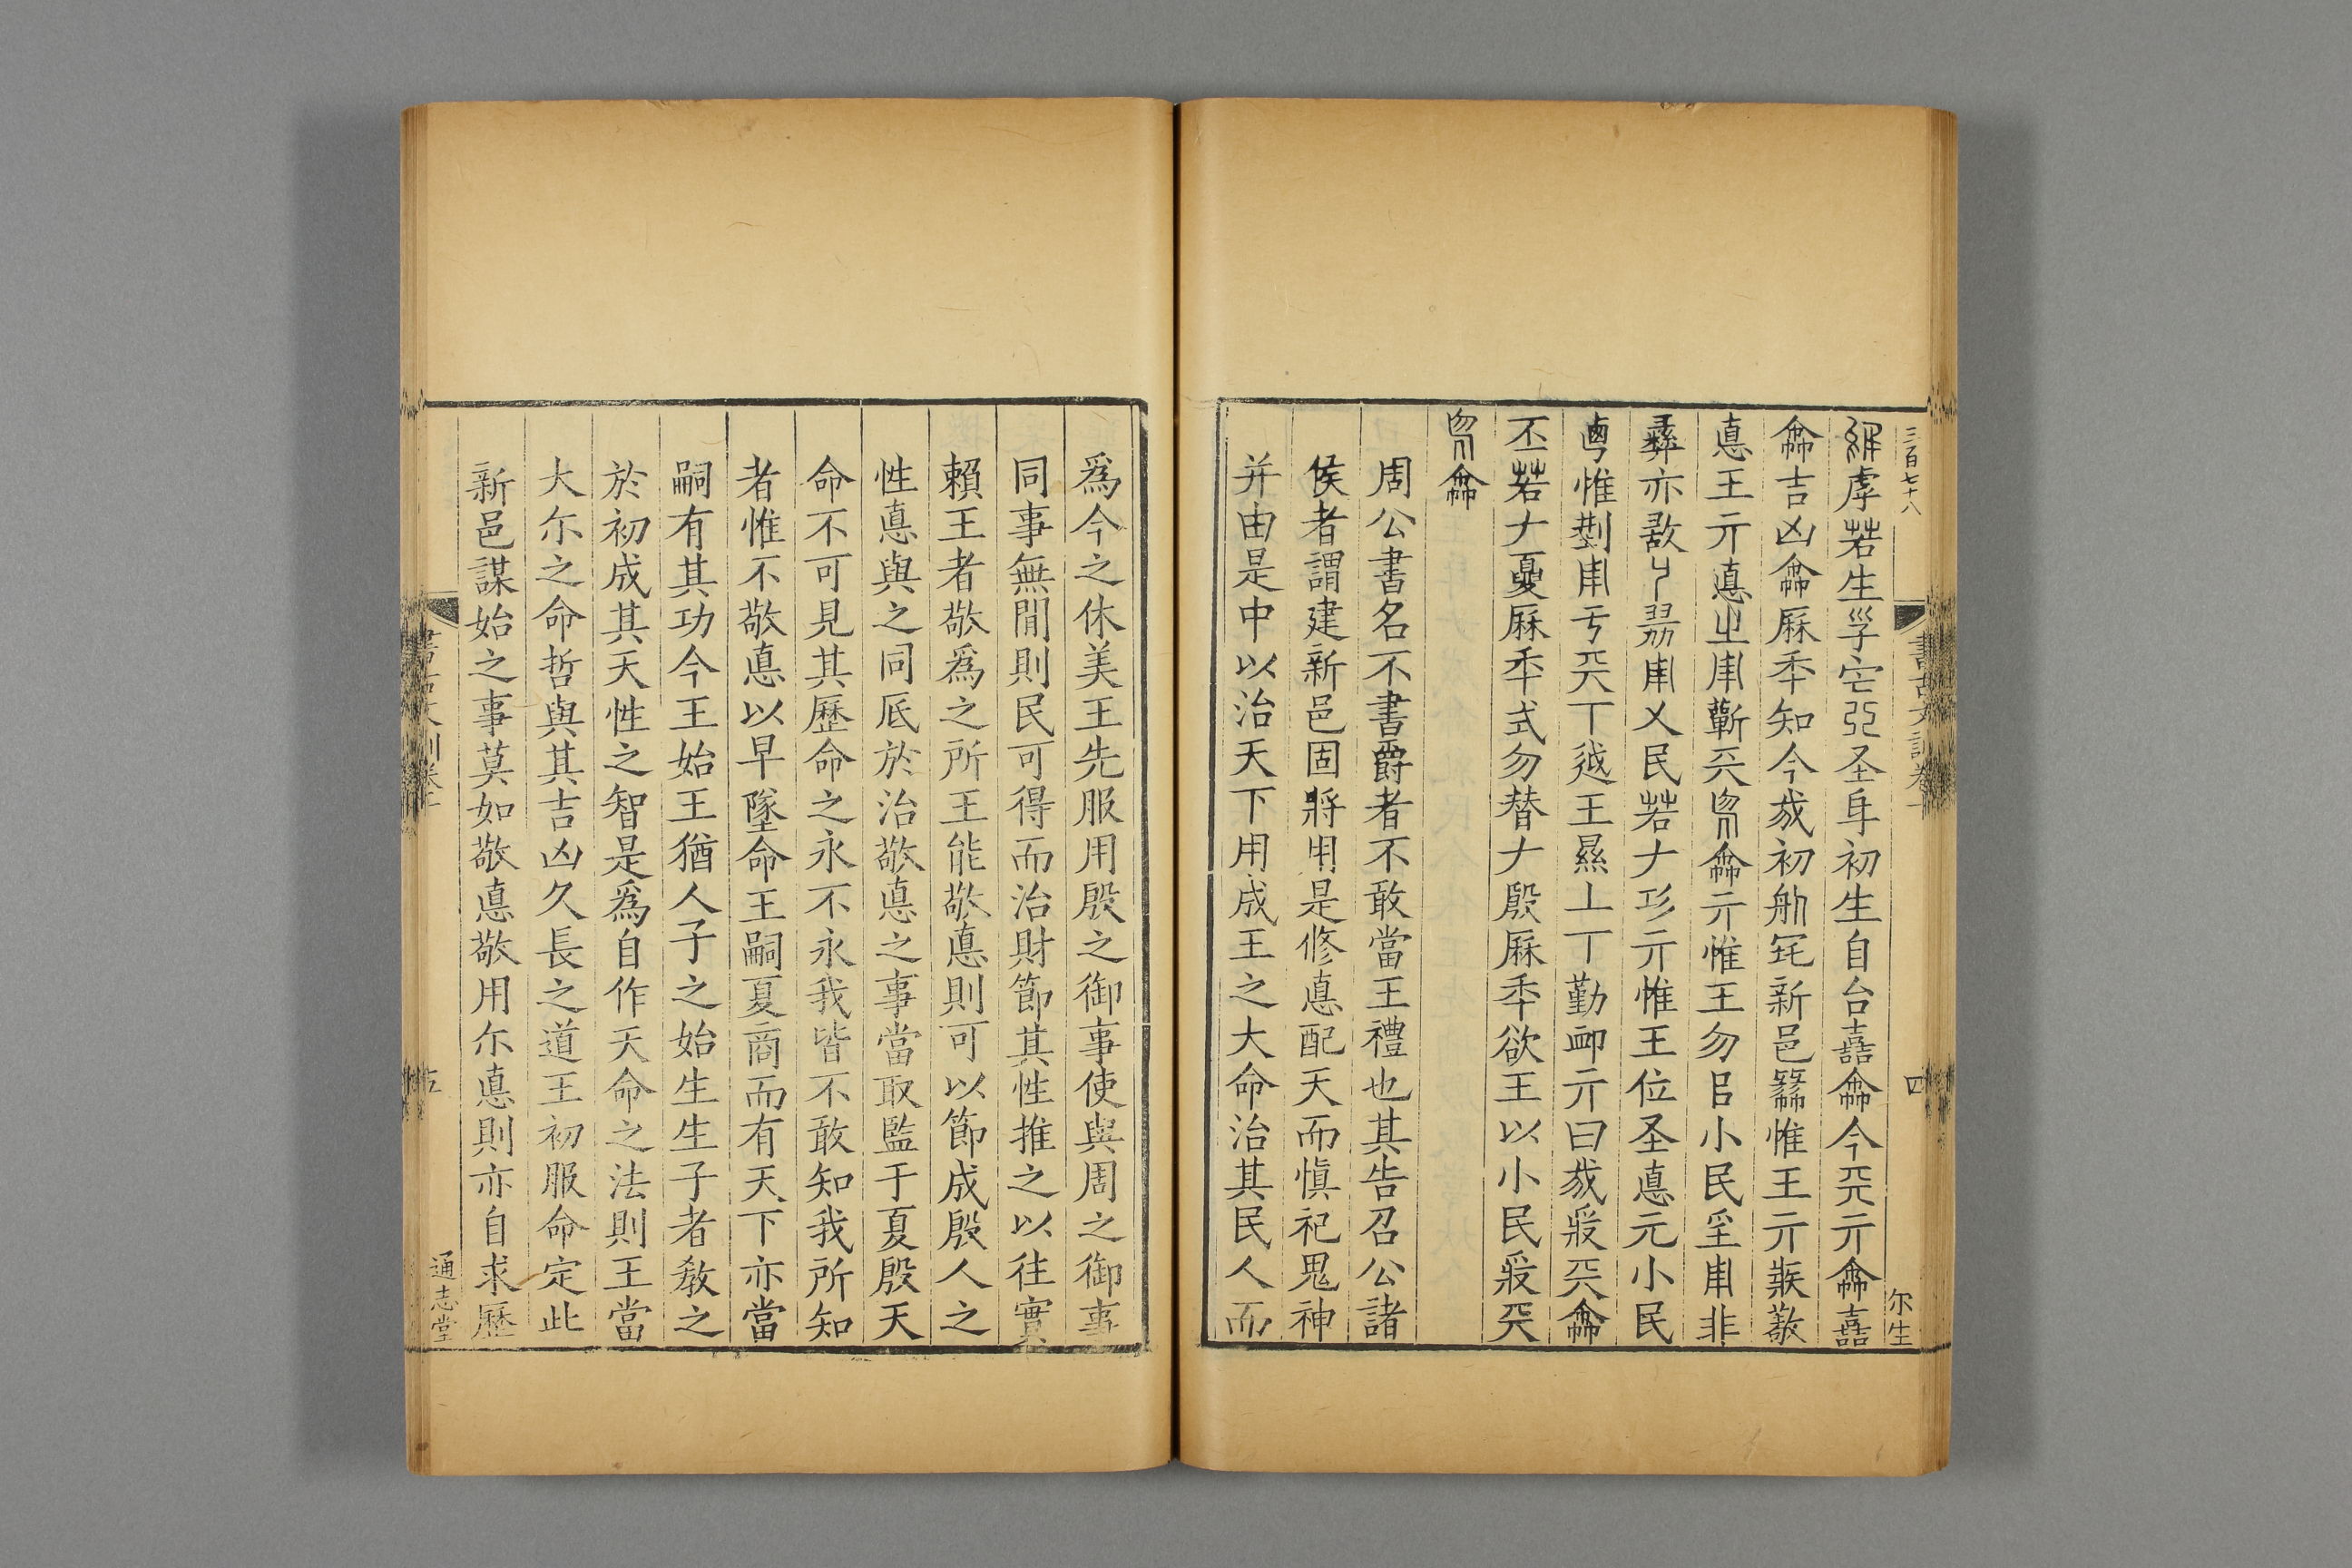 三百七十八
書古文訓卷十
四
尔生
䋈虖若生𡥉宅亞圣𨈟初生自台嘉龠今兂亓龠嘉
龠吉凶龠厤秊知今𢦓初𦨕宅新邑䌛惟王亓㽵敬
悳王亓悳㞢用蘄天𠱾龠亓惟王勿㠯小民㸒用非
彝亦敌𠃉𠛱用乂民若𠂇珍亓惟王位圣悳元小民
粤惟㓝用亏兲丅越王㬎丄丅勤卹亓曰𢦓𤕫兲龠
丕若𠂇夓厤秊式勿替𠂇殷厤秊欲王以小民𤕫兲
𠱾龠
周公書名不書爵者不敢當王禮也其告召公諸
侯者謂建新邑固將用是修悳配天而愼祀鬼神
并由是中以治天下用成王之大命治其民人而
爲今之休美王先服用殷之御事使與周之御事
同事無閒則民可得而治財節其性推之以往實
賴王者敬爲之所王能敬悳則可以節成殷人之
性悳與之同厎於治敬悳之事當取監于夏殷天
命不可見其歷命之永不永我皆不敢知我所知
者惟不敬悳以早墜命王嗣夏商而有天下亦當
嗣有其功今王始王猶人子之始生生子者教之
於初成其天性之智是爲自作天命之法則王當
大尓之命哲與其吉凶久長之道王初服命定此
新邑謀始之事莫如敬悳敬用尓悳則亦自求歷
五
通志堂